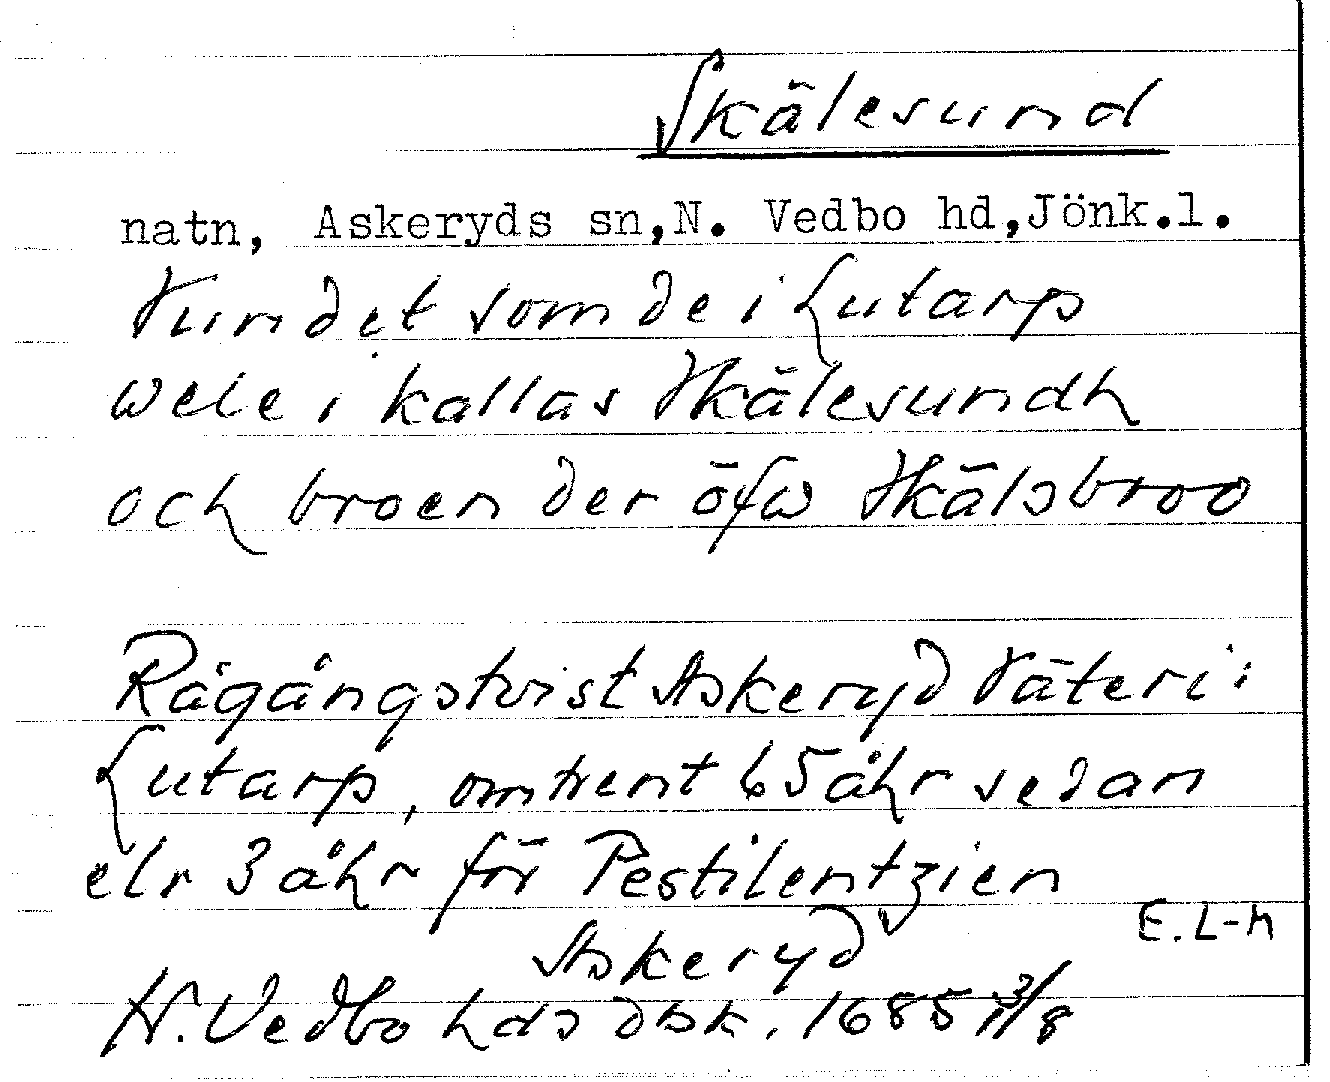 Skälesund
natn, Askeryds sn,N. Vedbo hd,Jönk.l.
Sundet som de i Lutarp
wele i kallas Skälesundh
och broen der öfw Skälsbroo
Rågångstvist Askeryd Säteri:
Lutarp, omtrent 65 åhr sedan
elr 3 åhr för Pestilentzien
E.L-n
Askeryd
N. Vedbo hds dbk. 1685